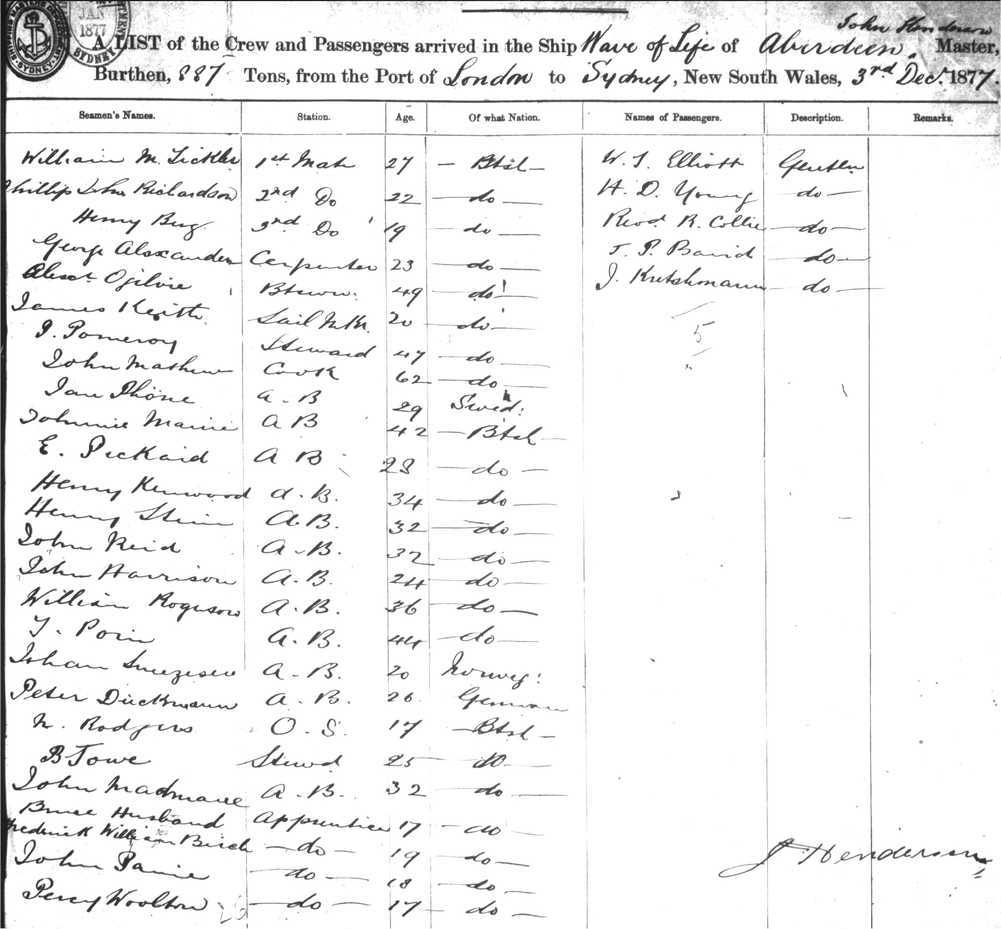 JAN
1877
SYDNEY
John Henderson
A LIST of the Crew and Passengers arrived in the Ship Wave of Life of Aberdeen, Master
Burthen, 887 Tons, from the Port of London to Sydney, New South Wales, 3rd Dec. 1877.
Seamen's Names. Station. Age. Of what Nation. Names of Passengers. Description. Remarks.
William M. Tickler 1st Mate 27 — Btsh — W. S. Elliott
Phillip John Richardson 2nd Do 22 — do — H. D. Young do —
Henry 3rd Do 19 — do — Revd. R. Collie — do —
George Alexander Carpenter 23 — do — J. P. Baird — do —
Alexr Ogilvie 49 — do J. Kretshmann — do —
James Keith Sail Mk. 20 — do —
J. Pomeroy Steward 47 — do — 5
John Mathew Cook 62 — do —
A. B 29 Swed:
Johnnie A B 42 — Btsh —
E. Pickard A B 28 — do —
Henry Kenwood A. B. 34 — do —
Henry A. B. 32 — do —
John Reid A. B. 32 — do —
John Harrison A. B. 24 — do —
William A. B. 36 — do —
A. B. 44 — do —
Johan A. B. 20 Norweg:
Peter Dückmann A. B. 26 German
N. Rodgers O. S. 17 — Btsh —
B Towe Stewd 25 — do —
John A. B. 32 — do —
Bruce Husband Apprentice 17 — do —
Frederick William Birch — do — 19 — do —
John — do — 18 — do —
Percy Woolton — do — 17 — do —
J Henderson